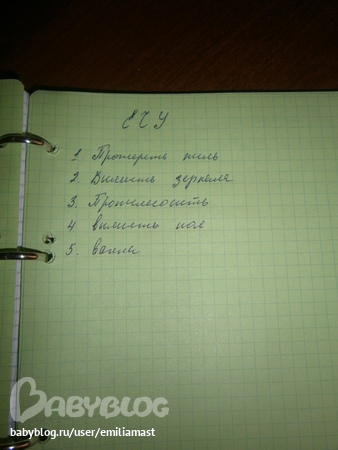 ЕЧУ
1. Протереть пыль
2. Вымыть зеркала
3. Пропылесосить
4. вымыть пол
5. ванна
BABYBLOG
babyblog.ru/user/emiliamast